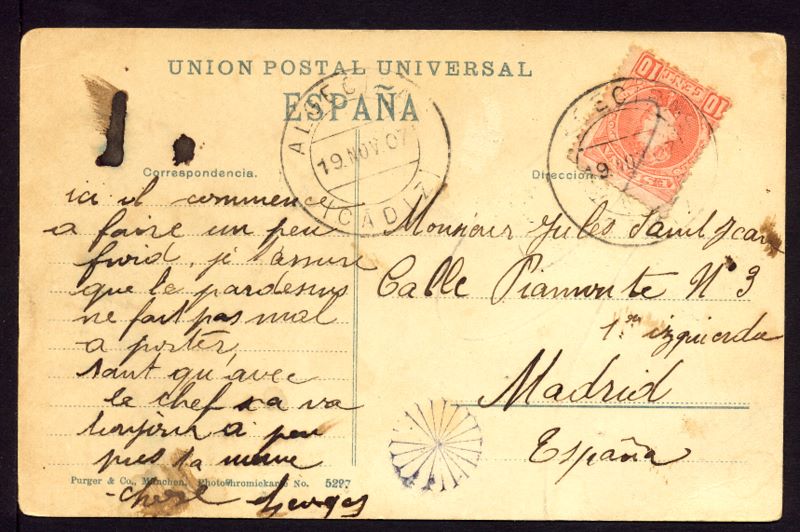 UNION POSTAL UNIVERSAL
ESPAÑA
ALGECI
19.NOV.07
(CADIZ)
10 10
Correspondencia.
Direccion
ici il commence
a faire un peu
froid, je t'assure
que le pardessus
ne fait pas mal
a porter,
tant qu'avec
le chef sa va
toujour a peu
pres la meme
chose Georges
Monsieur Jules Saint Jean
Calle Piamonte Nº 3
1º izquierda
Madrid
España
Purger & Co., München. Photochromiekarte No. 5297